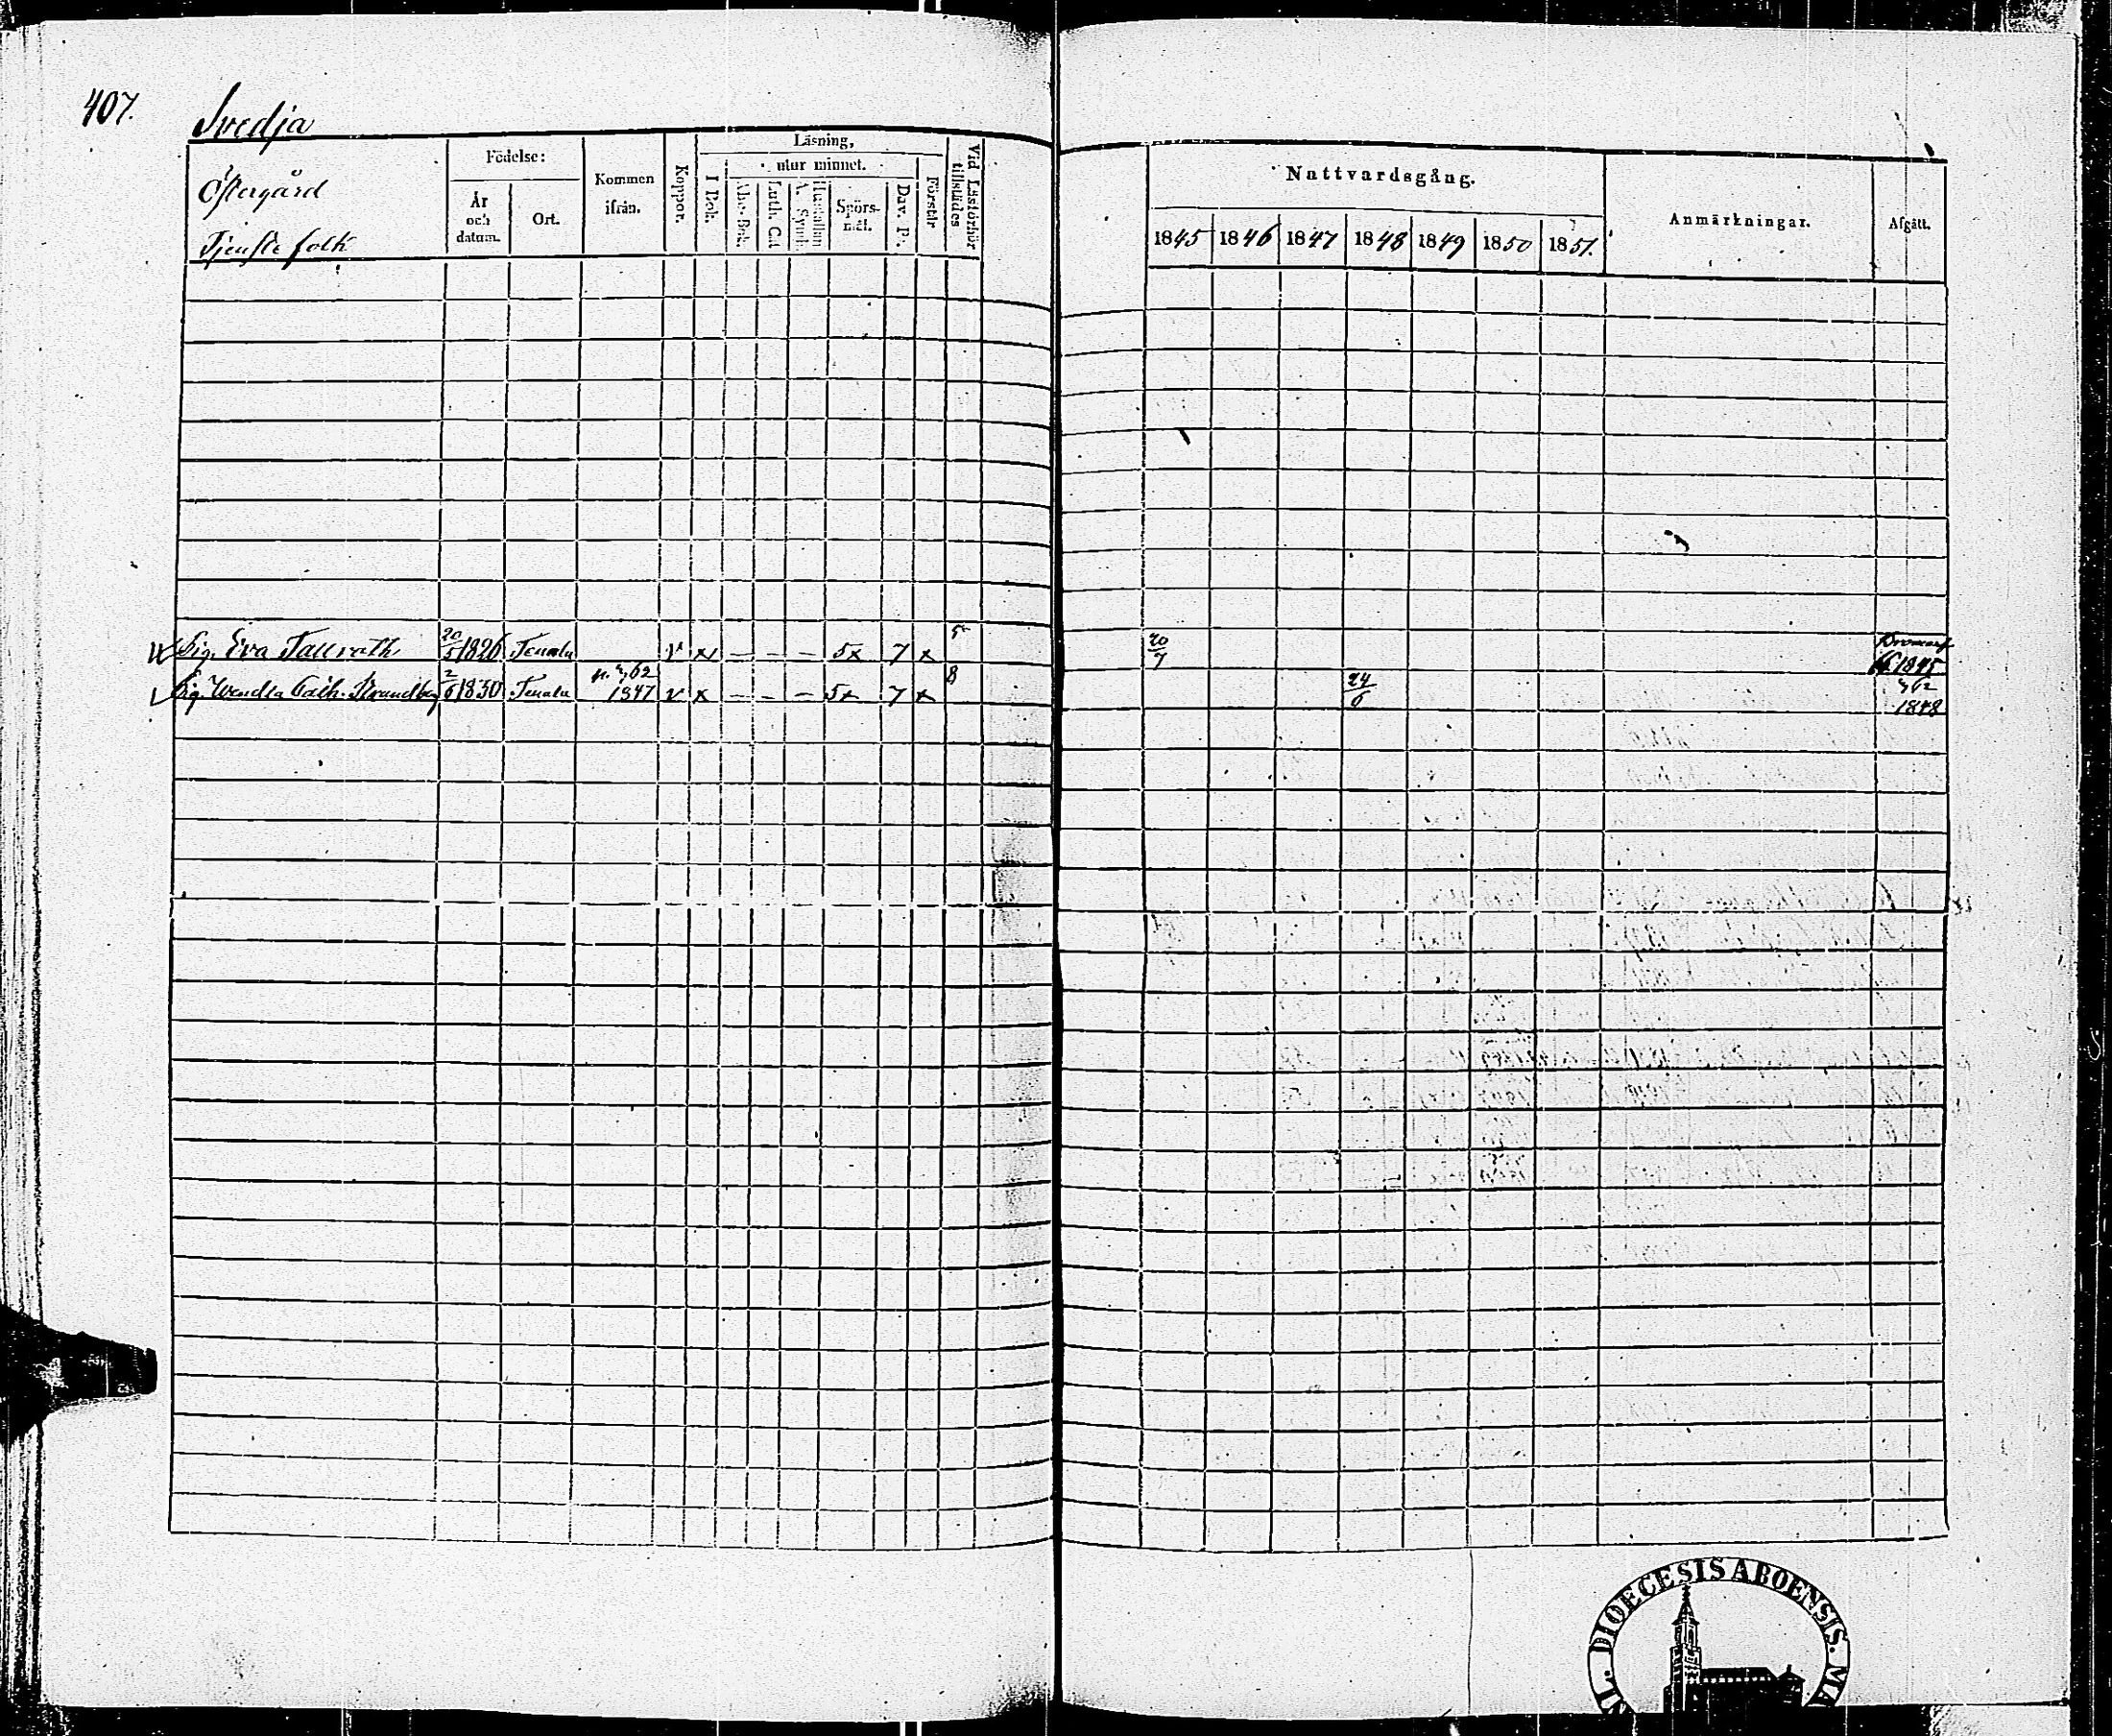 407.
Svedja
Östergård
Tjenste folk
Födelse:
År och datum.
Ort.
Kommen ifrån.
Koppor.
Läsning,
utur minnet.
I Bok.
Abc-Bok.
Luth. Cat
Hustaflan A. Symb.
Spörs-mål.
Dav. Ps.
Förstår
Vid Läsförhör tillstädes
Nattvardsgång.
1845 1846 1847 1848 1849 1850 1851.
Anmärkningar.
Afgått.
Pig. Eva Tallroth 20/5 1826 Tenala v x – – – 5x 7 x 5 20/7 Bromarf 1845
Pig. Wendla Cath. Strandberg 2/6 1830 Tenala 62 1847 v x – – – 5x 7 x 8 24/6 62 1848
DIOECESIS ABOENSIS. MA